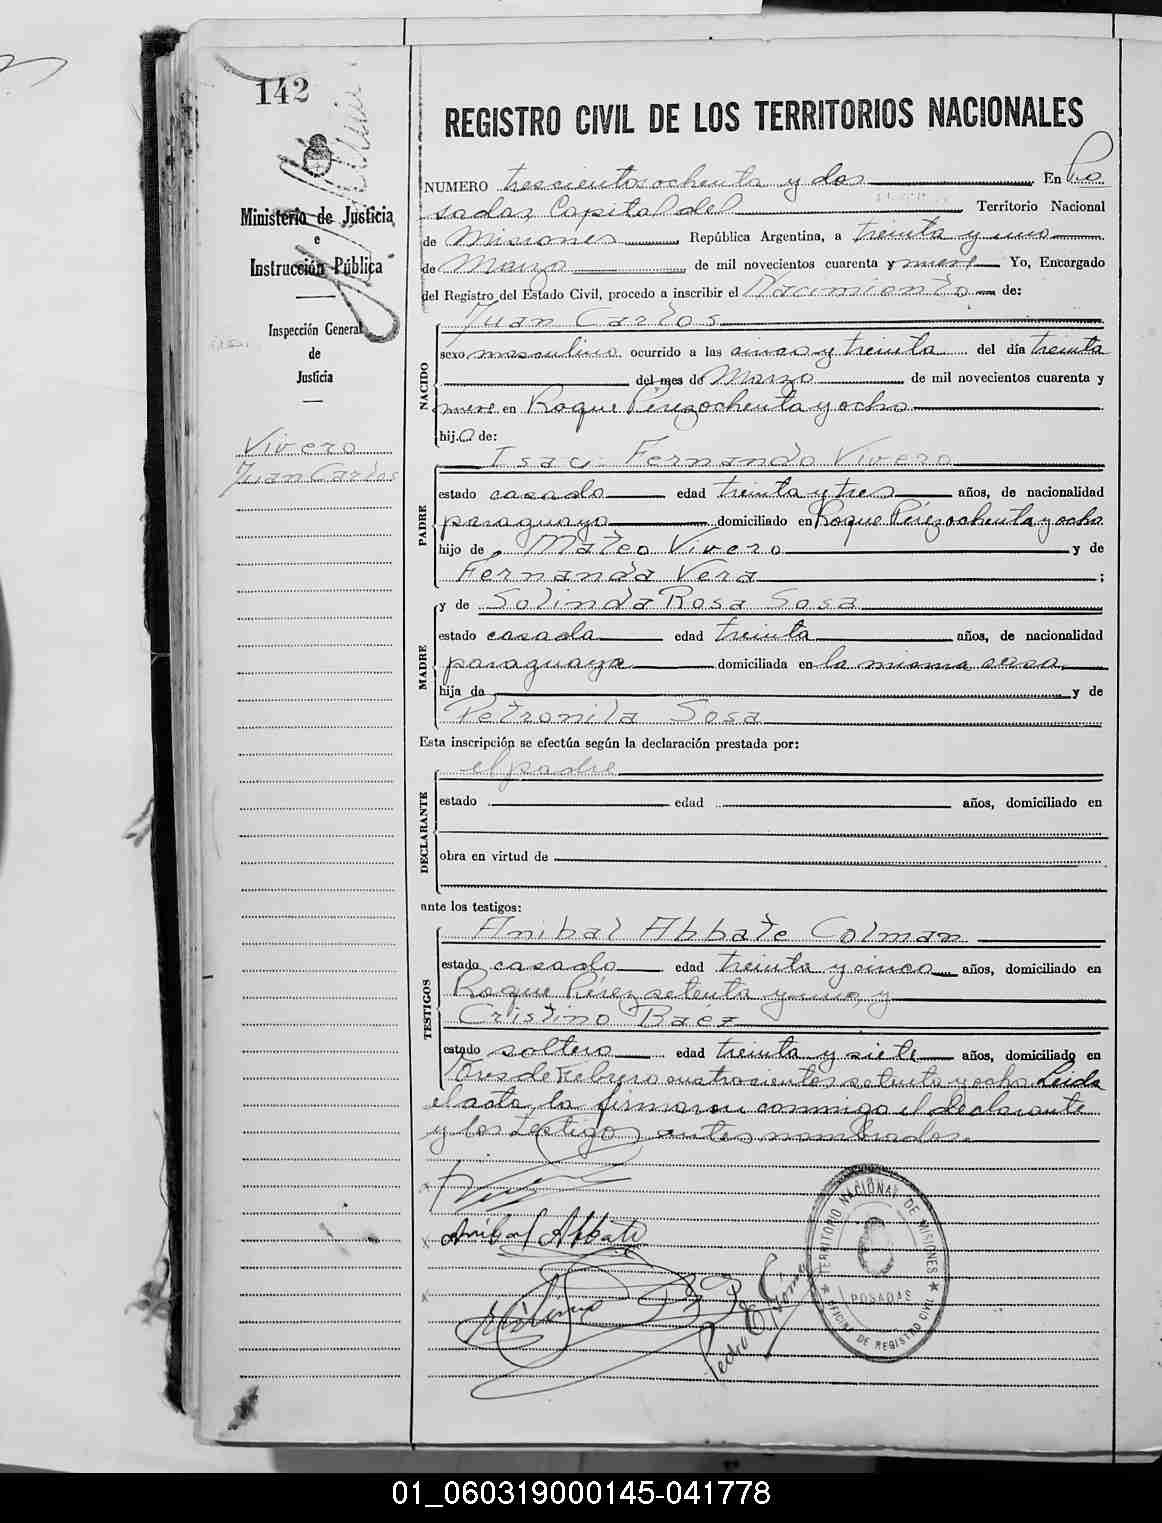 142
Ministerio de Justicia
e
Instrucción Pública
Inspección General
de
Justicia
Vivero
Juan Carlos
REGISTRO CIVIL DE LOS TERRITORIOS NACIONALES
NUMERO trescientos ochenta y dos En Po
sadas Capital del Territorio Nacional
de Misiones República Argentina, a treinta y uno
de Marzo de mil novecientos cuarenta y nueve Yo, Encargado
del Registro del Estado Civil, procedo a inscribir el Nacimiento de:
Juan Carlos
NACIDO
sexo masculino ocurrido a las cinco y treinta del día treinta
del mes de Marzo de mil novecientos cuarenta y
nueve en Roque Pérez ochenta y ocho
hijo de:
Isac Fernando Vivero
PADRE
estado casado edad treinta y tres años, de nacionalidad
paraguayo domiciliado en Roque Pérez ochenta y ocho
hijo de Mateo Vivero y de
Fernanda Vera ;
y de Solinda Rosa Sosa
MADRE
estado casada edad treinta años, de nacionalidad
paraguaya domiciliada en la misma casa
hija de y de
Petronila Sosa
Esta inscripción se efectúa según la declaración prestada por:
el padre
DECLARANTE
estado edad años, domiciliado en
obra en virtud de
ante los testigos:
Anibal Abbate Colman
TESTIGOS
estado casado edad treinta y cinco años, domiciliado en
Roque Pérez setenta y uno y
Cristino Baéz
estado soltero edad treinta y siete años, domiciliado en
Tres de Febrero cuatrocientos setenta y ocho Leida
el acta, la firmaron conmigo el declarante
y los testigos antes nombrados.
Anibal Abbate
Pedro E. Gómez
TERRITORIO NACIONAL DE MISIONES
POSADAS
OFICINA DE REGISTRO CIVIL
01_060319000145-041778